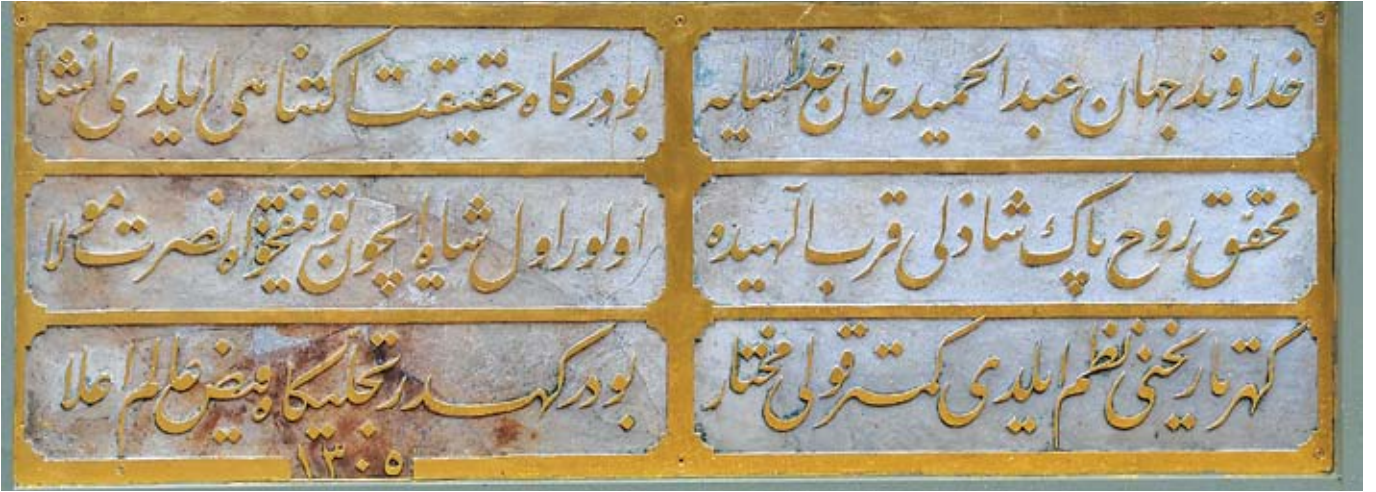 خداوند جهان عبدالحمید خان خدا سایه
بو درکاه حقیقت اکتناهی ایلدی انشا
محقق روح پاک شاذلی قرب الهیده
اولور اول شاه ایچون توفیقخواه نصرت مولا
کهر تاریخنی نظم ایلدی کمتر قولی مختار
بو درکهدر تجلیکاه فیض عالم اعلا
١٣٠٥